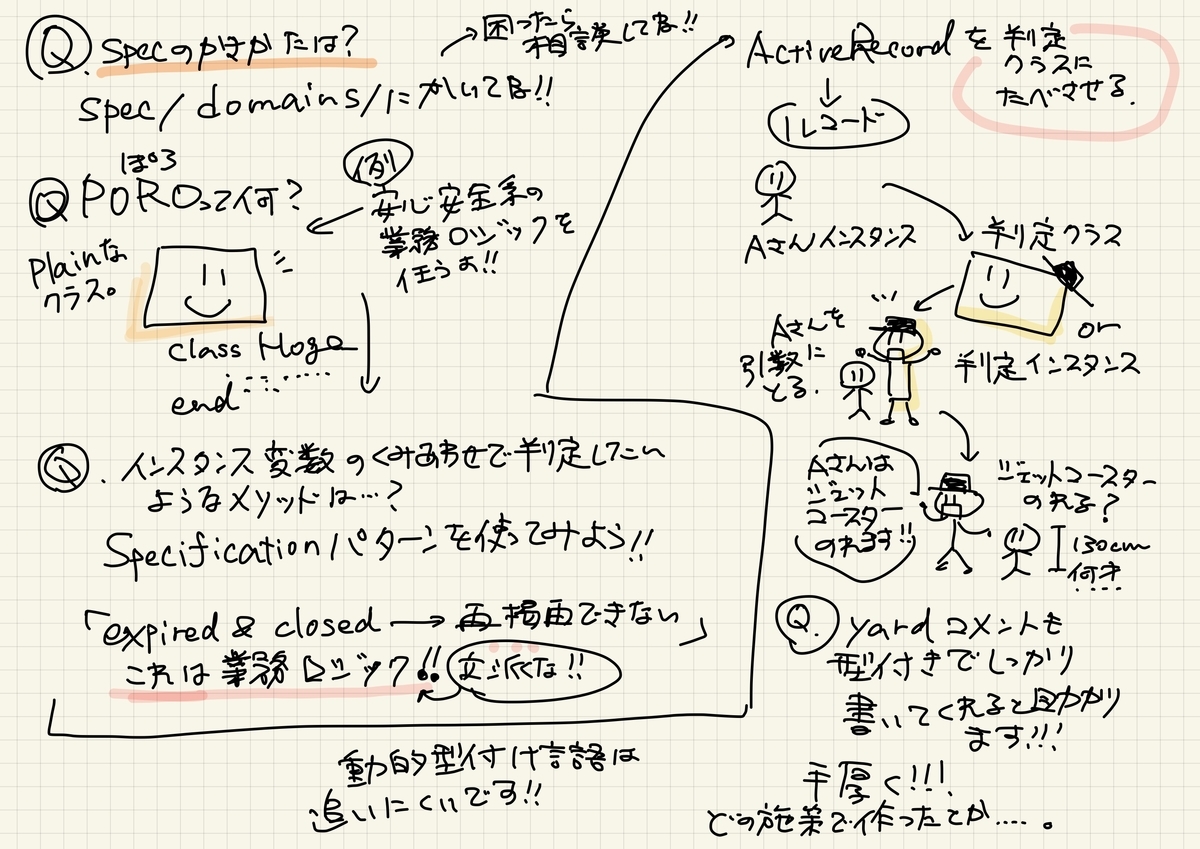 Q. Specのかきかたは?
→ 困ったら
相談してな!!
spec/domains/にかいてな!!
ぽろ
Q POROって何?
Plainな
クラス。
例
安心安全系の
業務ロジックを
任うぉ!!
class Hoge
end
Q. インスタンス変数のくみあわせで判定したい
ようなメソッドは…?
Specificationパターンを使ってみよう!!
「expired & closed → 再掲再できない」
これは業務ロジック!!
立派な!!
動的型付け言語は
追いにくいです!!
ActiveRecordを判定
クラスに
たべさせる.
1レコード
Aさんインスタンス
判定クラス
or
判定インスタンス
Aさんを
引数に
とる.
Aさんは
ジェット
コースター
のれます!!
ジェットコースター
のれる?
130cm
付き
Q. yardコメントも
型付きでしっかり
書いてくれると助かり
ます!!!
手厚く!!!
どの施策で作ったとか….。